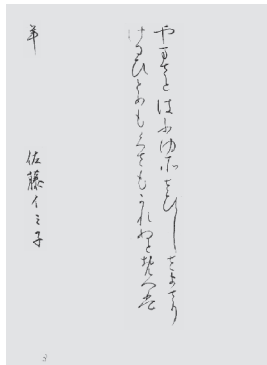 やまさとはふゆそさひしさまさり
けるひとめもくさもかれぬとおもへは
佐藤イミ子